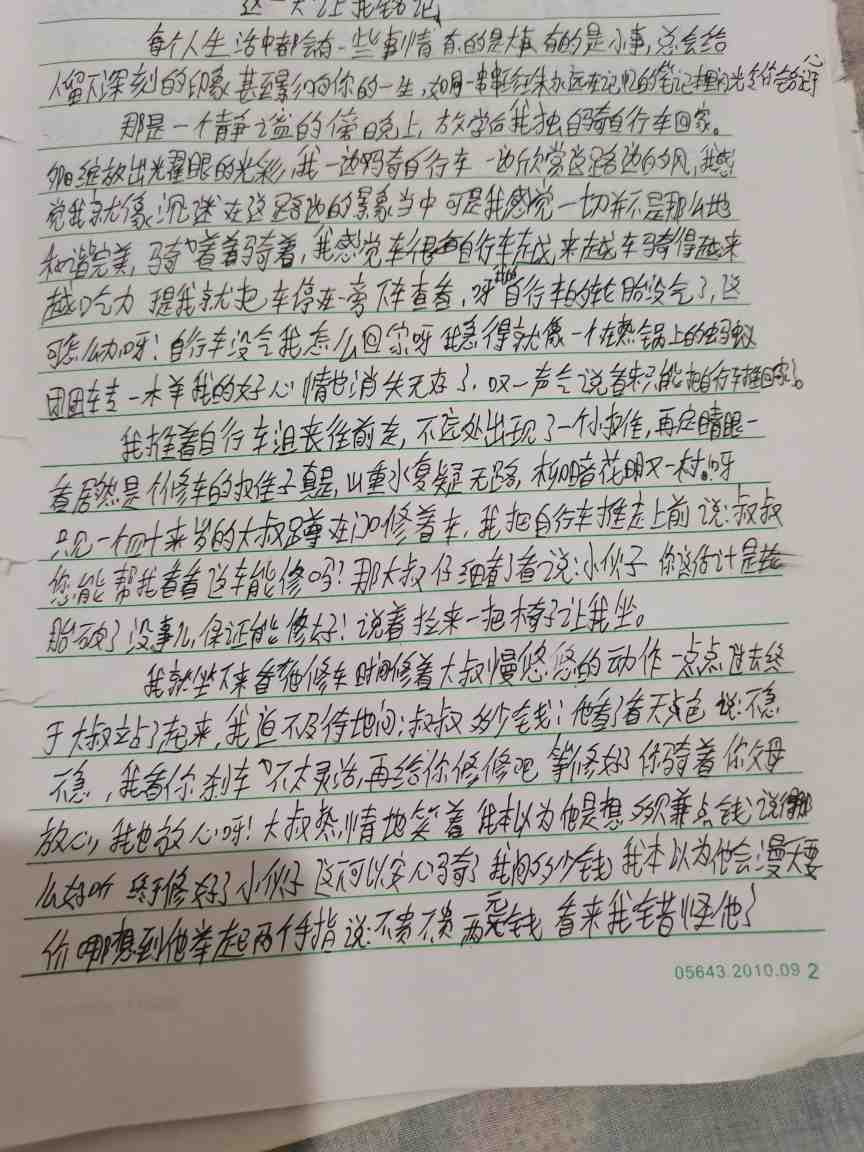 这一天让我铭记
每个人生活中都会有一些事情有的是大事有的是小事,总会给
人留下深刻的印象甚至影响你的一生,如同一串串红朱永远在记忆的笔记里闪光
那是一个静谧的傍晚上,放学后我独自骑自行车回家。
绽放出光耀眼的光彩,我一边骑自行车一边欣赏这路边的风,我感
觉我就像沉迷在这路边的景象当中可是我感觉一切并不是那么地
和谐完美,骑着着骑着,我感觉车很自行车越来越车骑得越来
越吃力 提我就把车停在一旁下车查看,呀自行车的轮胎没气了,这
可怎么办呀!自行车没气我怎么回家呀我急得就像一个在热锅上的蚂蚁
团团转一木羊我的好心情也消失无存了.叹一声气说看来只能把自行车推回家了。
我推着自行车沮丧往前走,不远处出现了一个小摊,再定睛眼一
看居然是个修车的摊子真是,山重水复疑无路,柳暗花明又一村。呀
只见一个四十来岁的大叔蹲在门口修着车,我把自行车推走上前说:叔叔
您能帮我看看这车能修吗?那大叔仔细看了看说:小伙子你这估计是轮
胎破了没事儿,保证能修好!说着捡来一把椅子让我坐。
我就坐下来看他修车时间修着大叔慢悠悠的动作一点点过去终
于大叔站了起来,我迫不及待地问:叔叔多少钱!他看了看天色说:不急
不急,我看你刹车不太灵活,再给你修修吧等修好了你骑着你父母
放心,我也放心呀!大叔热情地笑着我本以为他是想多赚点钱说得那
么好听 终于修好了小伙子这下可以安心骑了我问多少钱我本以为他会漫天要
价哪想到他举起两个手指说:不贵不贵两元钱看来我错怪他了
05643.2010.09 2